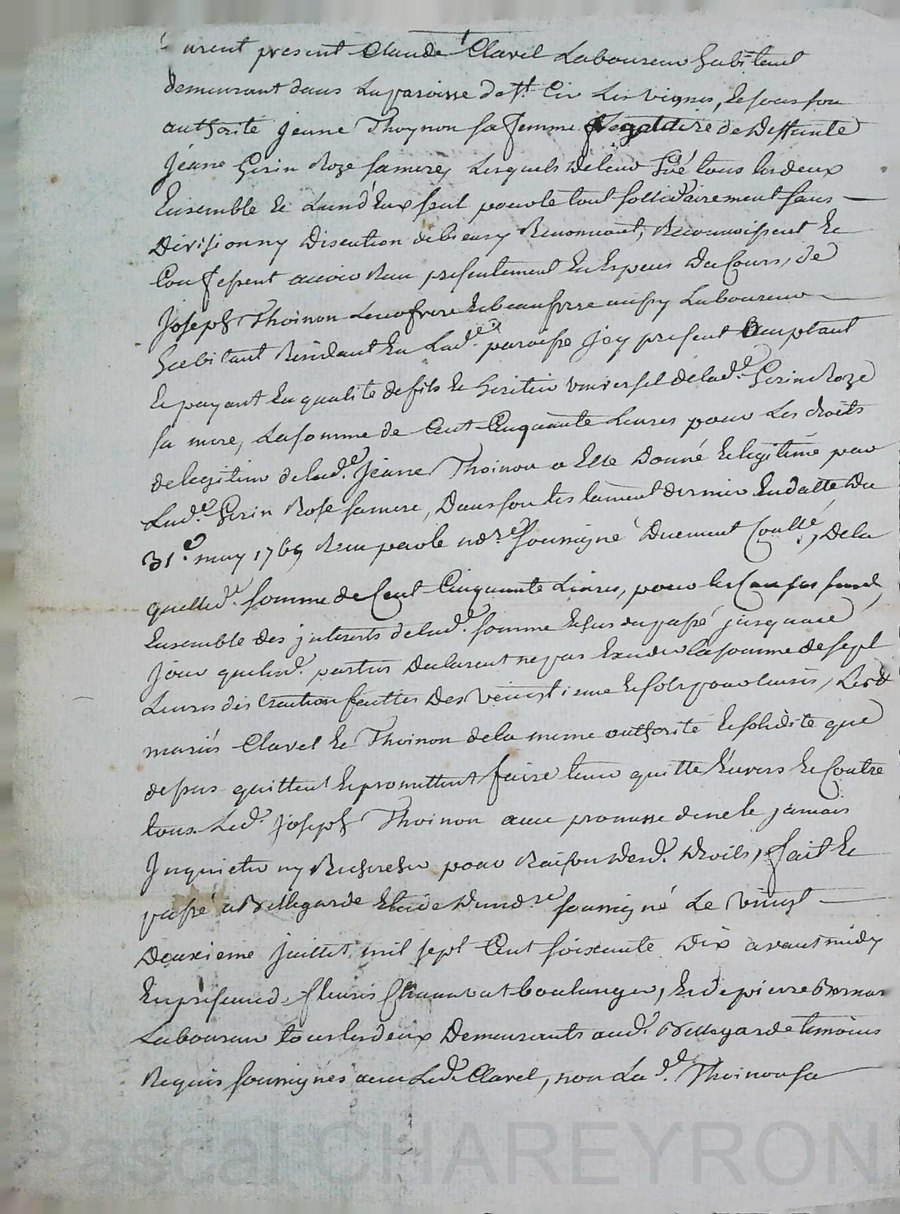 urent present Claude Clavel Laboureur habitant
demeurant dans La paroisse de st. Cir Les vignes, et sous son
authorité jeane Thoynon sa femme Legataire de deffunte
Jeane Gerin Roze sa mere, Lesquels de leur gré tous les deux
Ensemble et Lun d'Eux seul pour le tout sollidairement sans
Division ny Discution de biens y Renoncant, Reconnoissent et
Confessent avoir Reçu presentement En Especes du Cours, de
Joseph Thoinon Leur frere et beau frere aussy Laboureur
habitant Residant En Lade. paroisse Icy present Comptant
et payant En qualité de fils et heritier universel de lade. Gerin Roze
sa mere, La somme de Cent Cinquante Livres pour Les droits
de legitime de lade. Jeane Thoinon a Elle Donné et legitimé par
Lade. Gerin Rose sa mere, Dans son testament dernier En datte du
31e. may 1769 Reçu par le nore. soussigné Duement Conllé, De la
quelled. somme de Cent Cinquante Livres, pour les Causes susd
Ensemble des interets de lade. somme Echus du passé jusqua ce
jour quelesd. parties Declarent ne pas Exceder la somme de sept
Livres distraction faittes des vingtieme et sols pour livres, Lesd
mariés Clavel et Thoinon de la meme authorité et solidité que
dessus quittent et promettent faire tenir quitte Envers et Contre
tous Led. Joseph Thoinon avec promesse de ne le jamais
Inquieter ny Rechercher pour Raison desd. Droits, fait et
passé a Bellegarde Etude dud nore. soussigné Le vingt
Deuxieme juillet mil sept Cent soixante Dix avant midy
En presence de fleuris boulanger, et de pierre
Laboureur tous les deux Demeurants aud. Bellegarde temoins
Requis soussignés avec Led. Clavel, non La de. Thoinon sa
Pascal CHAREYRON